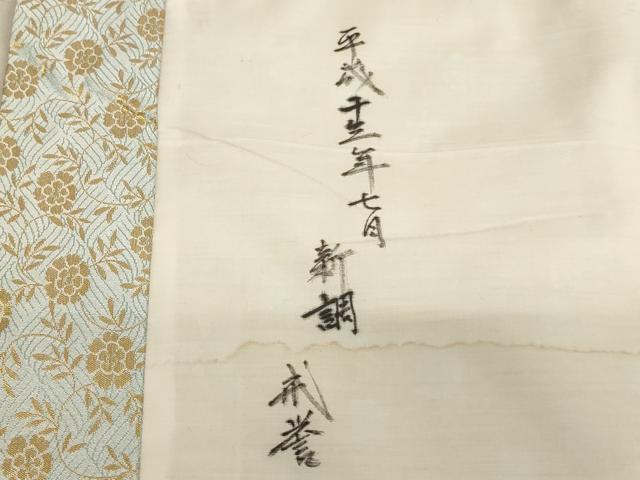 平成十三年七月
新調
戒誉